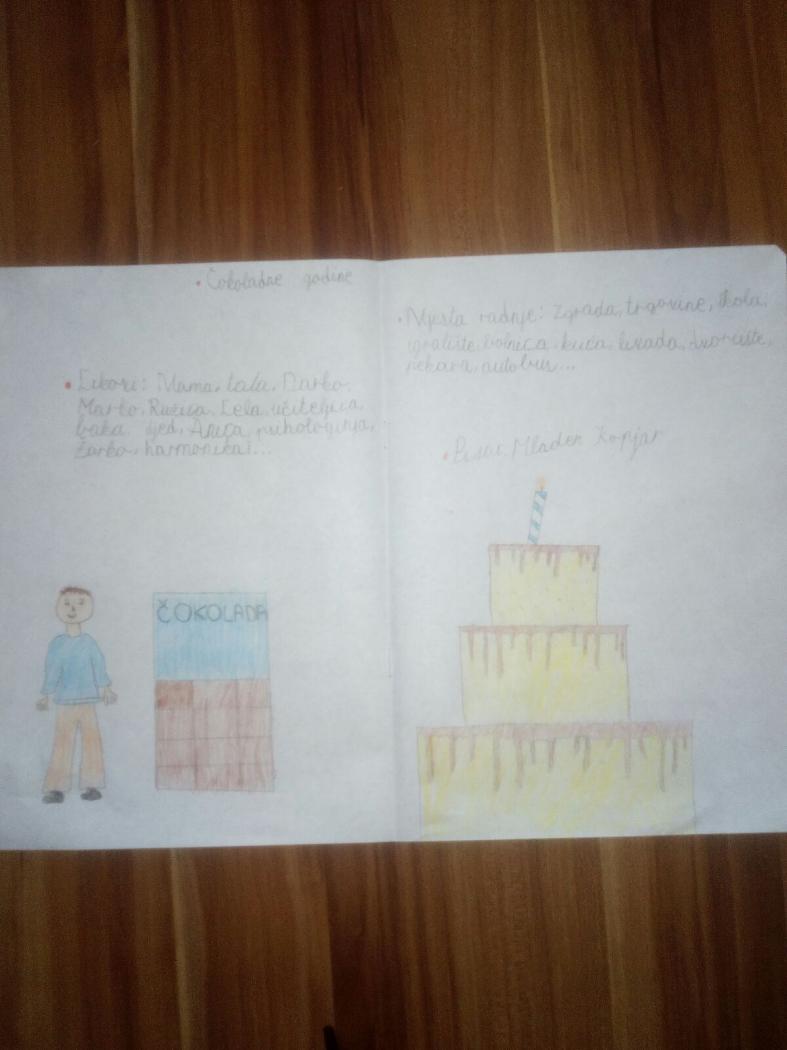 • Čokoladne godine
• Likovi: Mama, tata, Darko,
Marko, Ružica, Lela, učiteljica,
baka, djed, Anica, psihologinja,
Žarko, harmonikaš...
ČOKOLADA
• Mjesta radnje: zgrada, trgovine, škola,
igralište, bolnica, kuća, livada, dvorište,
pekara, autobus...
• Pisac: Mladen Kopjar